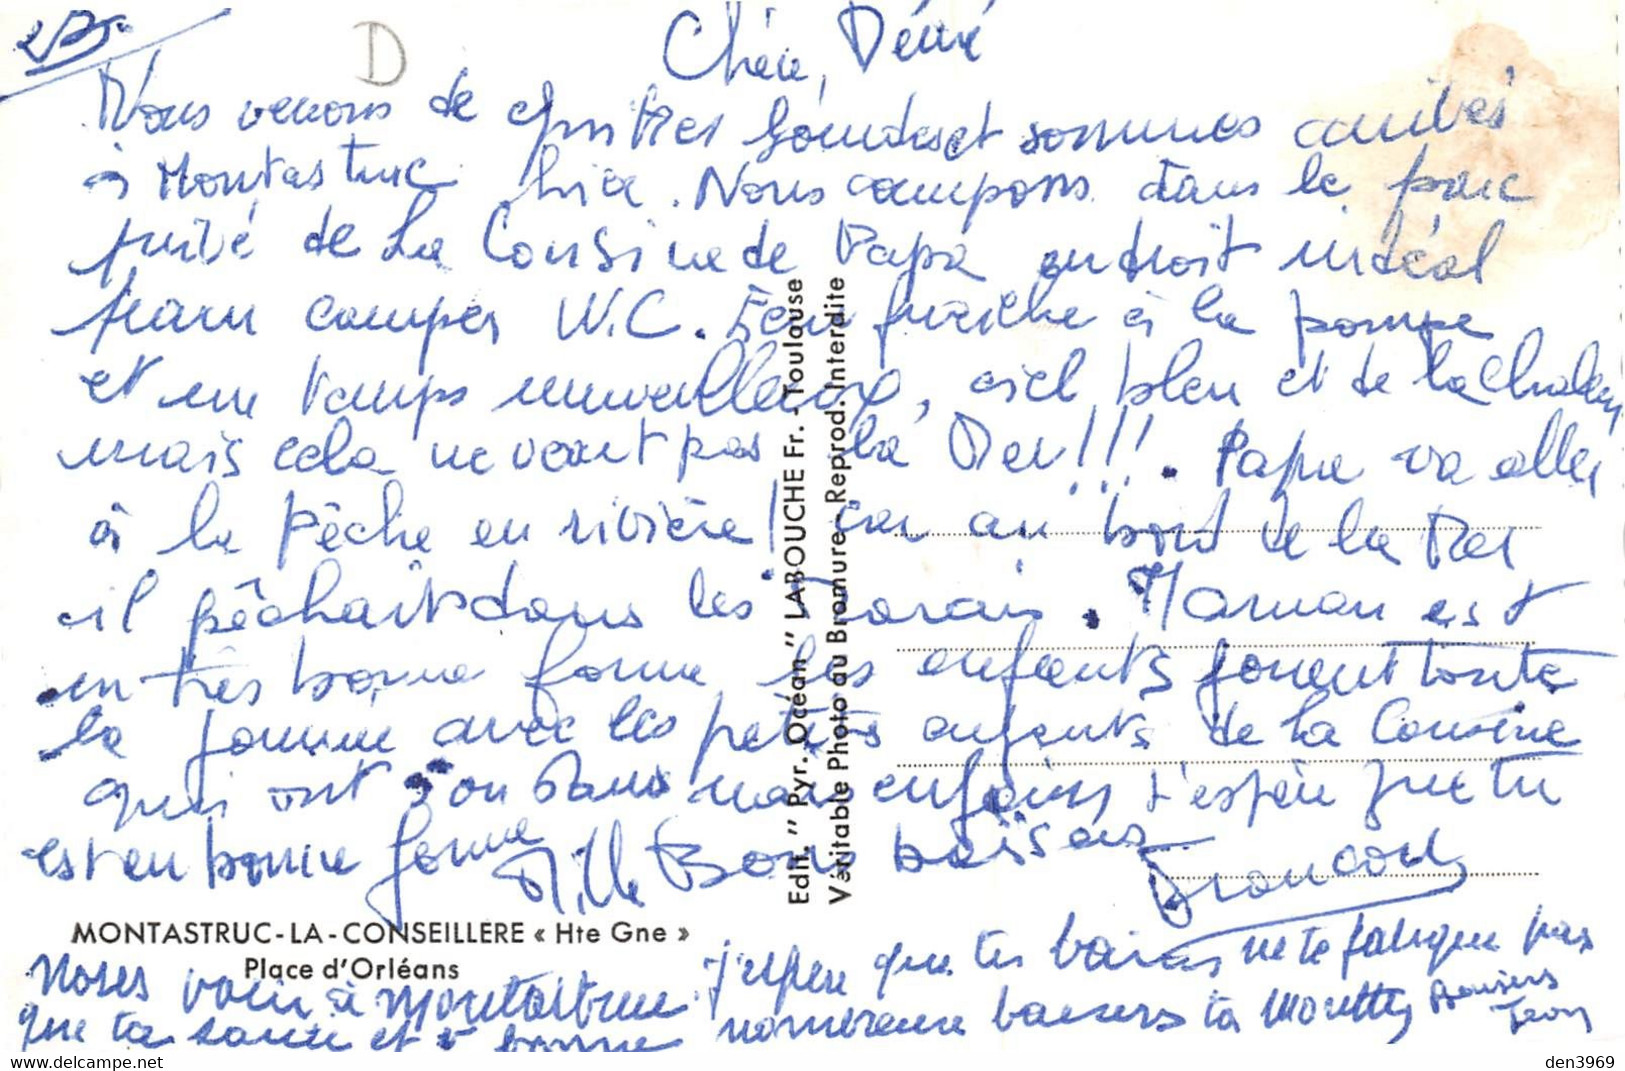 D
Chère Mémé
Nous venons de quitter et sommes arrivés
à Montastruc hier. Nous campons dans le parc
privé de la Cousine de Papa endroit idéal
pour camper W.C. Eau fraiche à la pompe
et un temps merveilleux, ciel bleu et de la chaleur
mais cela ne vaut pas la Mer!!!. Papa va aller
à la Pêche en rivière! car au bord de la Mer
il pêchait dans les Marais. Maman est
en très bonne forme les enfants jouent toute
la journée avec les petits enfants de la Cousine
qui ont l'espère que tu
est en bonne forme Mille Bons baisers
MONTASTRUC-LA-CONSEILLERE « Hte Gne »
Place d'Orléans
Edit. " Pyr. Océan " LABOUCHE Fr. - Toulouse
Véritable Photo au Bromure - Reprod. Interdite
j'espère que tes bains ne te fatigue pas
voeux à Montastruc
que ta santé et bonne
nombreux baisers ta Baisers
Jean
den3969